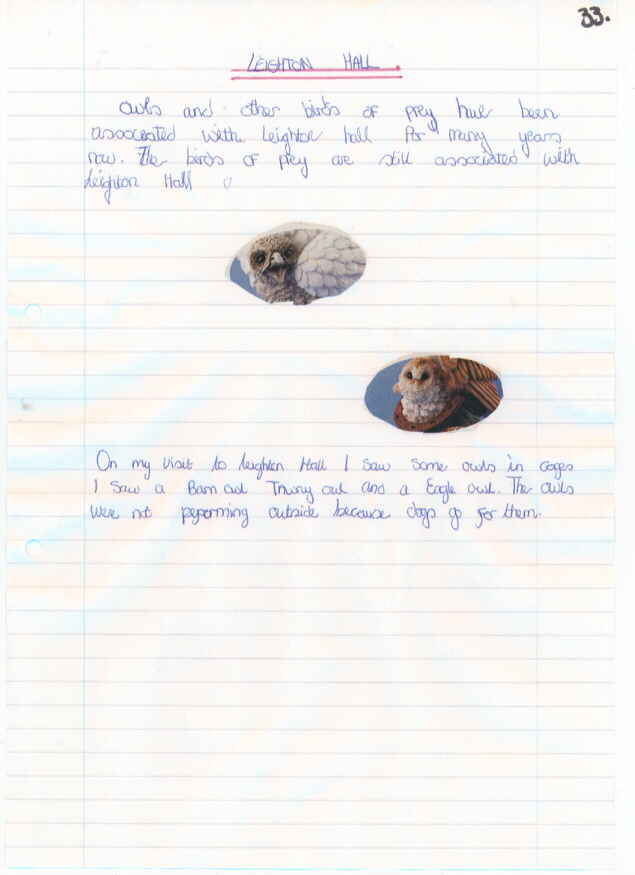 33.
LEIGHTON HALL.
Owls and other birds of prey have been
associated with Leighton hall for many years
now. The birds of prey are still associated with
Leighton Hall
On my visit to Leighton Hall I saw some owls in cages
I saw a Barn owl Thwny owl and a Eagle owl. The owls
were not peforming outside because dogs go for them.